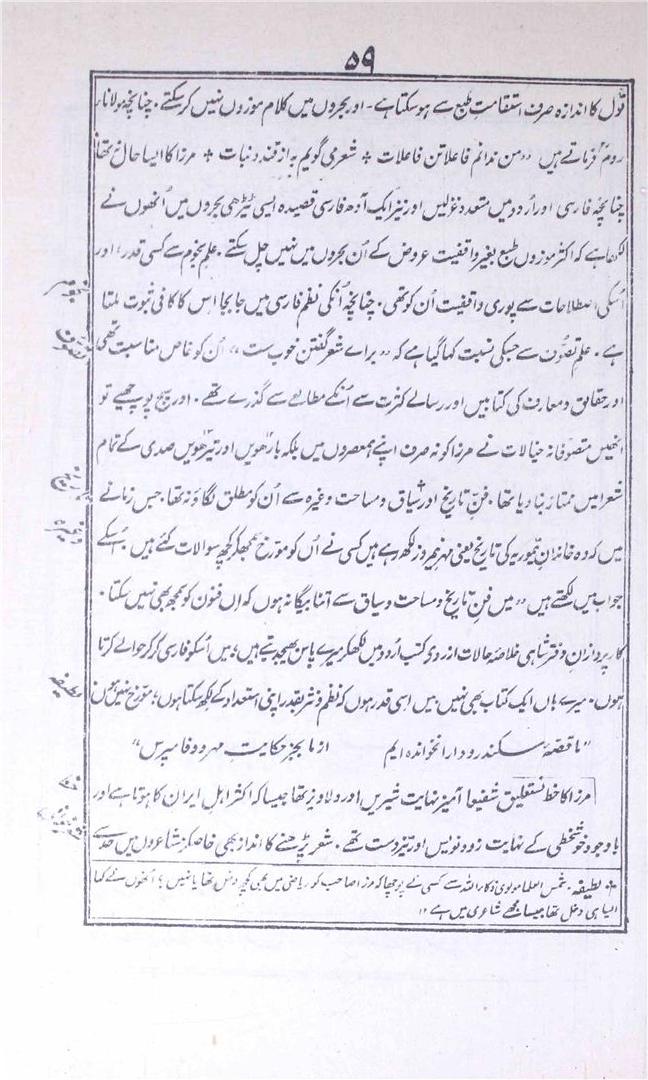 ۵۹
قول کا اندازہ صرف استقامتِ طبع سے ہو سکتا ہے - اور بحروں میں کلام موزوں نہیں کر سکتے - چنانچہ مولانا
روم فرماتے ہیں "من ندانم فاعلاتن فاعلات + شعر می گویم بہ از قند و نبات + مرزا کا ایسا حال نہ تھا
چنانچہ فارسی اور اُردو میں متعدد غزلیں اور نیز ایک آدھ فارسی قصیدہ ایسی ٹیڑھی بحروں میں اُنھوں نے
لکھا ہے کہ اکثر موزوں طبع بغیر واقفیت عروض کے اُن بحروں میں نہیں چل سکتے - علمِ نجوم سے کسی قدر اور
اُسکی اصطلاحات سے پوری واقفیت اُن کو تھی - چنانچہ اُنکی نظم فارسی میں جا بجا اس کا کافی ثبوت ملتا
ہے - علم تصوّف سے جسکی نسبت کہا گیا ہے کہ "براے شعر گفتن خوب ست" اُن کو خاص مناسبت تھی
اور حقایق و معارف کی کتابیں اور رسالے کثرت سے اُنکے مطالعے سے گذرے تھے - اور سچ پوچھیے تو
انھیں متصوفانہ خیالات نے مرزا کو نہ صرف اپنے ہمعصروں میں بلکہ بارھویں اور تیرھویں صدی کے تمام
شعرا میں ممتاز بنا دیا تھا - فنِ تاریخ اور سیاق و مساحت وغیرہ سے اُن کو مطلق لگاؤ نہ تھا - جس زمانے
میں کہ وہ خاندانِ تیموریہ کی تاریخ یعنی مہرِ نیمروز لکھ رہے ہیں کسی نے اُن کو مورّخ سمجھکر کچھ سوالات کئے ہیں اُسکے
جواب میں لکھتے ہیں "میں فنِ تاریخ و مساحت و سیاق سے اتنا بیگانہ ہوں کہ اِن فنون کو سمجھ بھی نہیں سکتا -
کارپردازانِ دفتر شاہی خلاصہ حالات از روی کتب اُردو میں لکھکر میرے پاس بھیجدیتے ہیں، میں اُسکو فارسی کر کر حوالے کرتا
ہوں - میرے ہاں ایک کتاب بھی نہیں - میں اسی قدر ہوں کہ نظم و نثر بقدر اپنی استعداد کے لکھ سکتا ہوں؛ مورّخ نہیں ہوں
"ما قصۂ سکندر و دارا نخواندہ ایم از ما بجز حکایتِ مہر و وفا مپرس"
مرزا کا خط نستعلیق شفیعا آمیز نہایت شیریں اور دلاویز تھا جیسا کہ اکثر اہلِ ایران کا ہوتا ہے اور
باوجود خوشخطی کے نہایت زود نویس اور تیز دست تھے - شعر پڑھنے کا انداز بھی خاصکر مشاعروں میں حد سے
+ لطیفہ - شمس العلما مولوی ذکاءاللہ سے کسی نے پوچھا کہ مرزا صاحب کو ریاضی میں بھی کچھ دخل تھا یا نہیں؟ اُنھوں نے کہا
ایسا ہی دخل تھا جیسا مجھے شاعری میں ہے ۱۲
نجوم
تصوف
تاریخ
وغیرہ
لطیفہ
خط